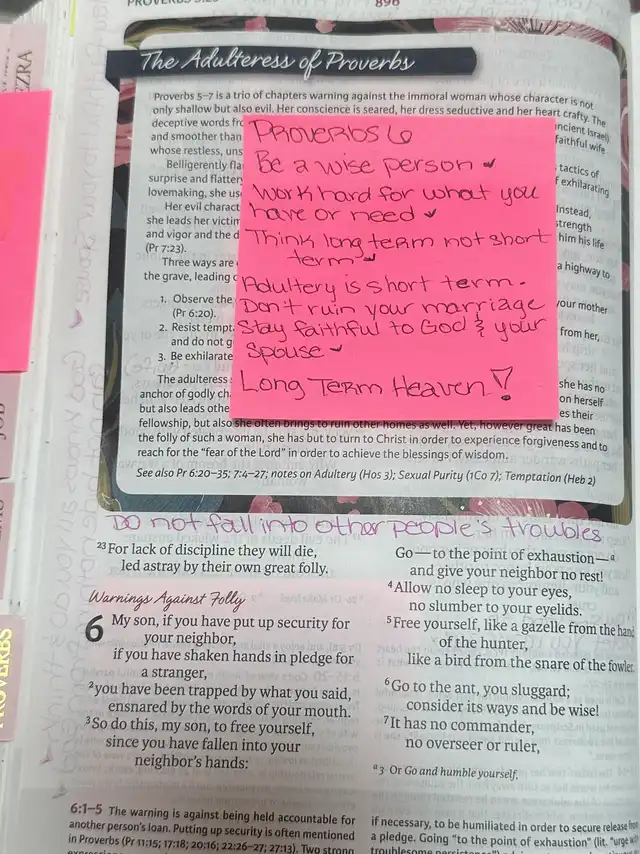 PROVERBS 5:23
896
The Adulteress of Proverbs
Proverbs 5–7 is a trio of chapters warning against the immoral woman whose character is not
only shallow but also evil. Her conscience is seared, her dress seductive and her heart crafty. The
deceptive words
ncient Israel)
and smoother than
faithful wife
whose restless, uns
Belligerently fla
tactics of
surprise and flatter
f exhilarating
lovemaking, she us
Her evil charact
Instead,
she leads her victim
strength
and vigor and the d
him his life
(Pr 7:23).
Three ways are
a highway to
the grave, leading
1. Observe the
your mother
(Pr 6:20).
2. Resist tempt
from her,
and do not g
3. Be exhilarate
The adulteress
she has no
anchor of godly ch
on herself
but also leads othe
es their
fellowship, but also she often brings to ruin other homes as well. Yet, however great has been
the folly of such a woman, she has but to turn to Christ in order to experience forgiveness and to
reach for the “fear of the Lord” in order to achieve the blessings of wisdom.
See also Pr 6:20–35; 7:4–27; notes on Adultery (Hos 3); Sexual Purity (1Co 7); Temptation (Heb 2)
PROVERBS 6
Be a wise person ✓
Work hard for what you
have or need ✓
Think long term not short
term ✓
Adultery is short term.
Don't ruin your marriage
Stay faithful to God & your
spouse ✓
Long Term Heaven!
Do not fall into other people's troubles
23 For lack of discipline they will die,
led astray by their own great folly.
Warnings Against Folly
6 My son, if you have put up security for
your neighbor,
if you have shaken hands in pledge for
a stranger,
2 you have been trapped by what you said,
ensnared by the words of your mouth.
3 So do this, my son, to free yourself,
since you have fallen into your
neighbor’s hands:
Go—to the point of exhaustion—a
and give your neighbor no rest!
4 Allow no sleep to your eyes,
no slumber to your eyelids.
5 Free yourself, like a gazelle from the hand
of the hunter,
like a bird from the snare of the fowler.
6 Go to the ant, you sluggard;
consider its ways and be wise!
7 It has no commander,
no overseer or ruler,
a 3 Or Go and humble yourself,
6:1–5 The warning is against being held accountable for
another person’s loan. Putting up security is often mentioned
in Proverbs (Pr 11:15; 17:18; 20:16; 22:26–27; 27:13). Two strong
if necessary, to be humiliated in order to secure release from
a pledge. Going “to the point of exhaustion” (lit. “urge
EZRA
JOB
PROVERBS